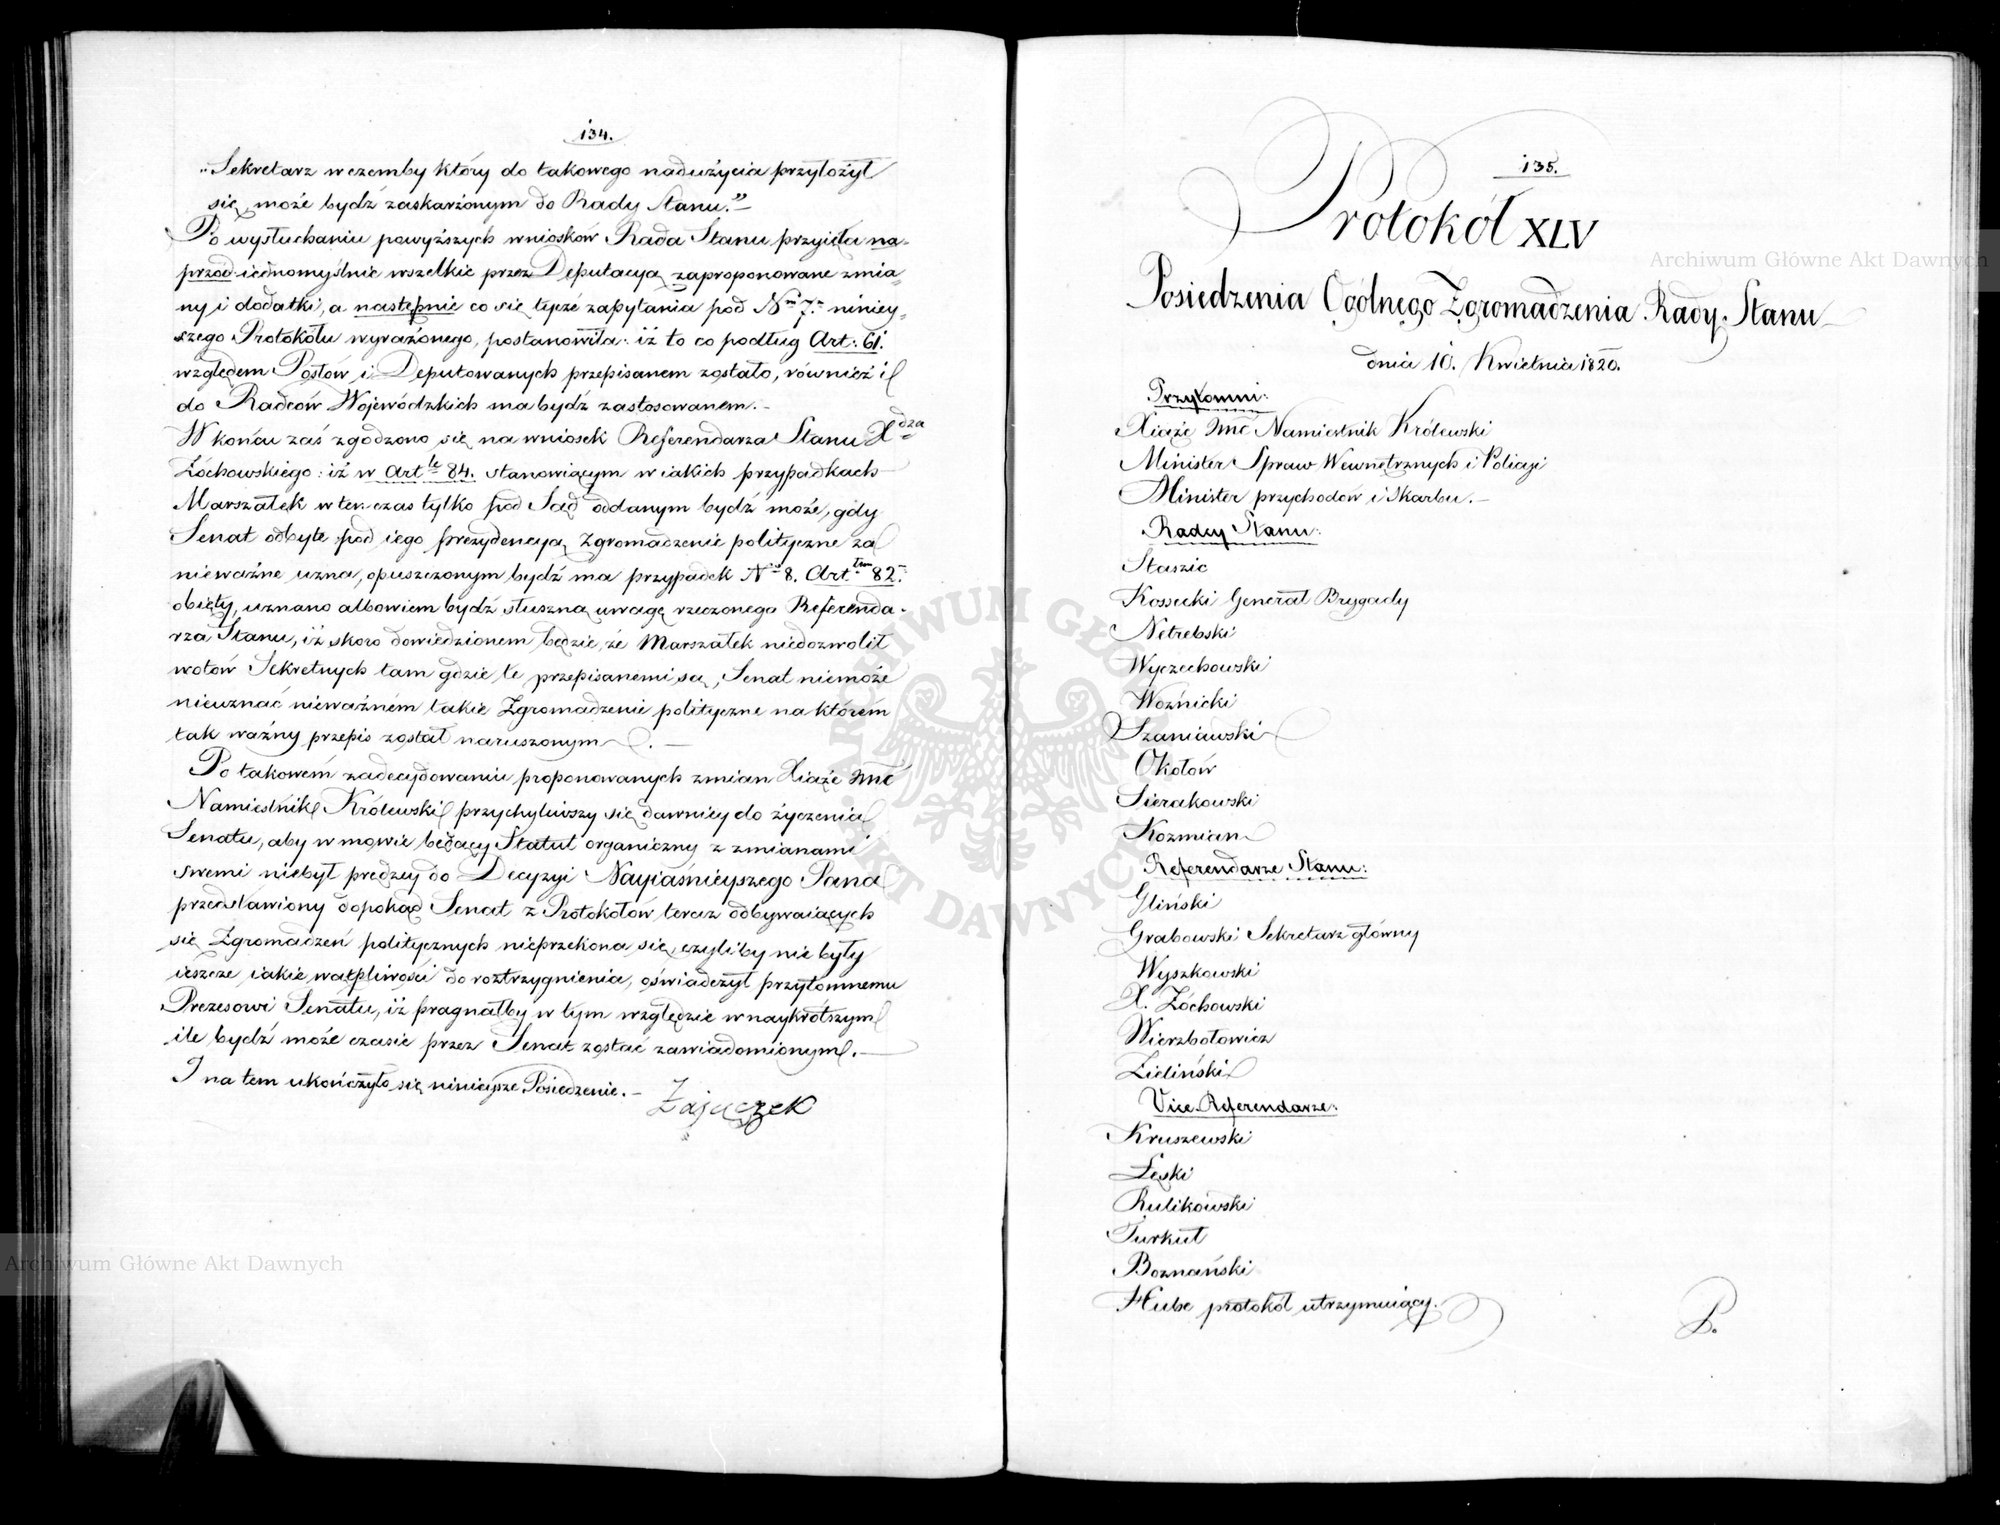 134.
„Sekretarz w czemby który do takowego nadużycia przyłożył
się, może bydź zaskarżonym do Rady Stanu.”
Po wysłuchaniu powyższych wniosków Rada Stanu przyięła na-
przód iednomyślnie wszelkie przez Deputacyą zaproponowane zmia-
ny i dodatki, a następnie co się tycze zapytania pod Nm 7. niniey-
szego Protokółu wyrażonego, postanowiła: iż to co podług Art: 61.
względem Posłów i Deputowanych przepisanem zostało, również i
do Radców Wojewódzkich ma bydź zastosowanem.
W końcu zaś zgodzono się na wniosek Referendarza Stanu Xdza
Żóchowskiego: iż w Artle 84. stanowiącym w iakich przypadkach
Marszałek w ten czas tylko pod Sąd oddanym bydź może, gdy
Senat odbyte pod iego prezydencyą Zgromadzenie polityczne za
nieważne uzna, opuszczonym bydź ma przypadek No 8. Arttem 82.
obięty, uznano albowiem bydź słuszną uwagę rzeczonego Referenda-
rza Stanu, iż skoro dowiedzionem będzie, że Marszałek niedozwolił
wotów Sekretnych tam gdzie te przepisanemi są, Senat niemoże
nieuznać nieważném takie Zgromadzenie polityczne na którém
tak ważny przepis został naruszonym.
Po takowém zadecydowaniu proponowanych zmian Xiąże Jmć
Namiestnik Królewski przychyliwszy się dawniey do życzenia
Senatu, aby w mowie będący Statut organiczny z zmianami
swemi niebył prędzey do Decyzyi Nayiaśnieyszego Pana
przedstawiony dopokąd Senat z Protokółów teraz odbywaiących
się Zgromadzeń politycznych nieprzekona się, czyliby nie były
ieszcze iakie wątpliwości do roztrzygnienia, oświadczył przytomnemu
Prezesowi Senatu, iż pragnąłby w tym względzie w naykrótszym
ile bydź może czasie przez Senat zostać zawiadomionym.
I na tem ukończyło się ninieysze Posiedzenie.
Zajączek
135.
Protokół XLV
Posiedzenia Ogólnego Zgromadzenia Rady Stanu
dnia 10. Kwietnia 1820.
Przytomni:
Xiąże Jmć Namiestnik Królewski
Minister Spraw Wewnętrznych i Policyi
Minister przychodów i Skarbu.
Radcy Stanu:
Staszic
Kossecki Generał Brygady
Netrebski
Wyczechowski
Woźnicki
Szaniawski
Okołów
Sierakowski
Kozmian
Referendarze Stanu:
Gliński
Grabowski Sekretarz główny
Wyszkowski
X. Żóchowski
Wierzbołowicz
Zieliński
Vice-Referendarze:
Kruszewski
Łęski
Rulikowski
Turkuł
Boznański
Hube protokół utrzymuiący.
P.
Archiwum Główne Akt Dawnych
Archiwum Główne Akt Dawnych
ARCHIWUM GŁÓWNE AKT DAWNYCH